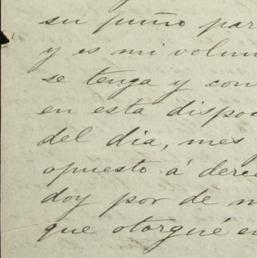 su puño par
y es mi volun
se tenga y con
en esta dispo
del dia, mes
opuesto á dere
doy por de n
que otorgué en